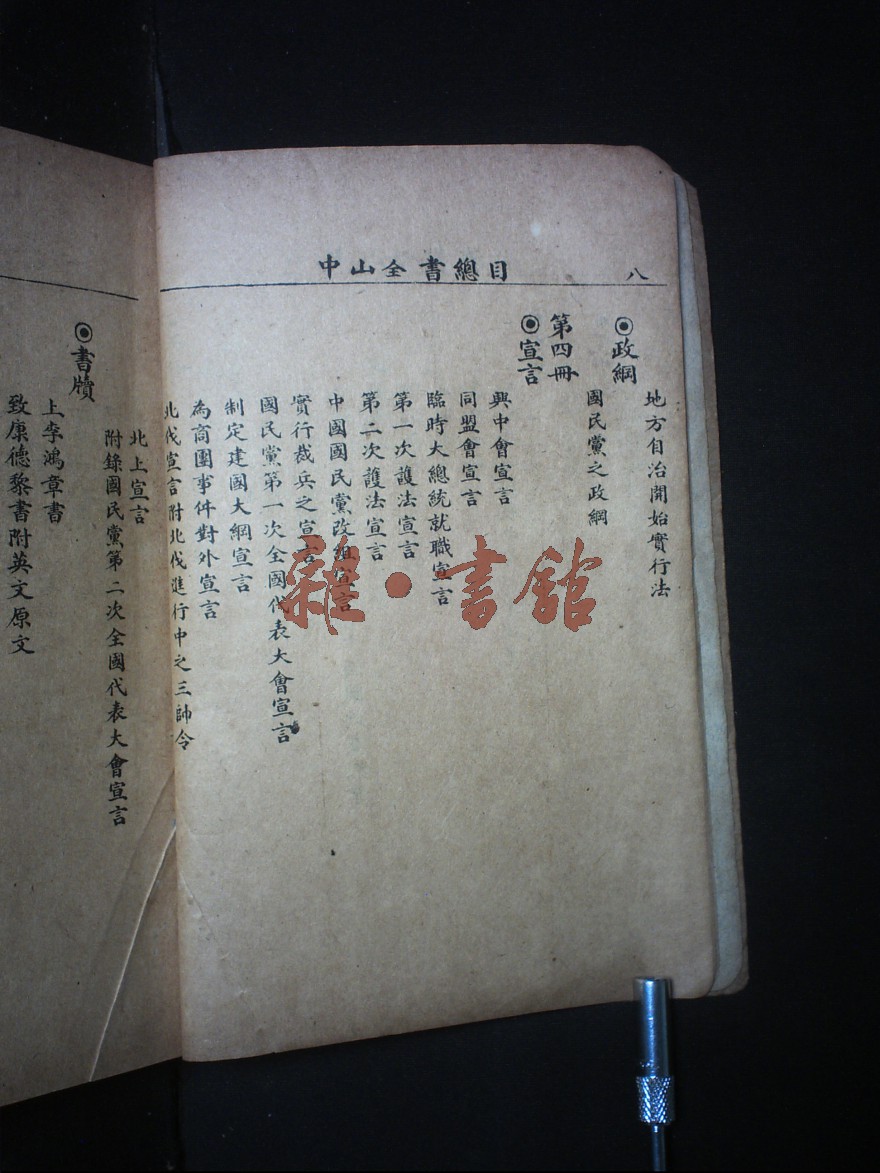 中山全書總目
八
地方自治開始實行法
◉政綱
國民黨之政綱
第四冊
◉宣言
興中會宣言
同盟會宣言
臨時大總統就職宣言
第一次護法宣言
第二次護法宣言
中國國民黨改組宣言
實行裁兵之宣言
國民黨第一次全國代表大會宣言
制定建國大綱宣言
為商團事件對外宣言
北伐宣言附北伐進行中之三帥令
北上宣言
附錄國民黨第二次全國代表大會宣言
◉書牘
上李鴻章書
致康德黎書附英文原文
雜·書館